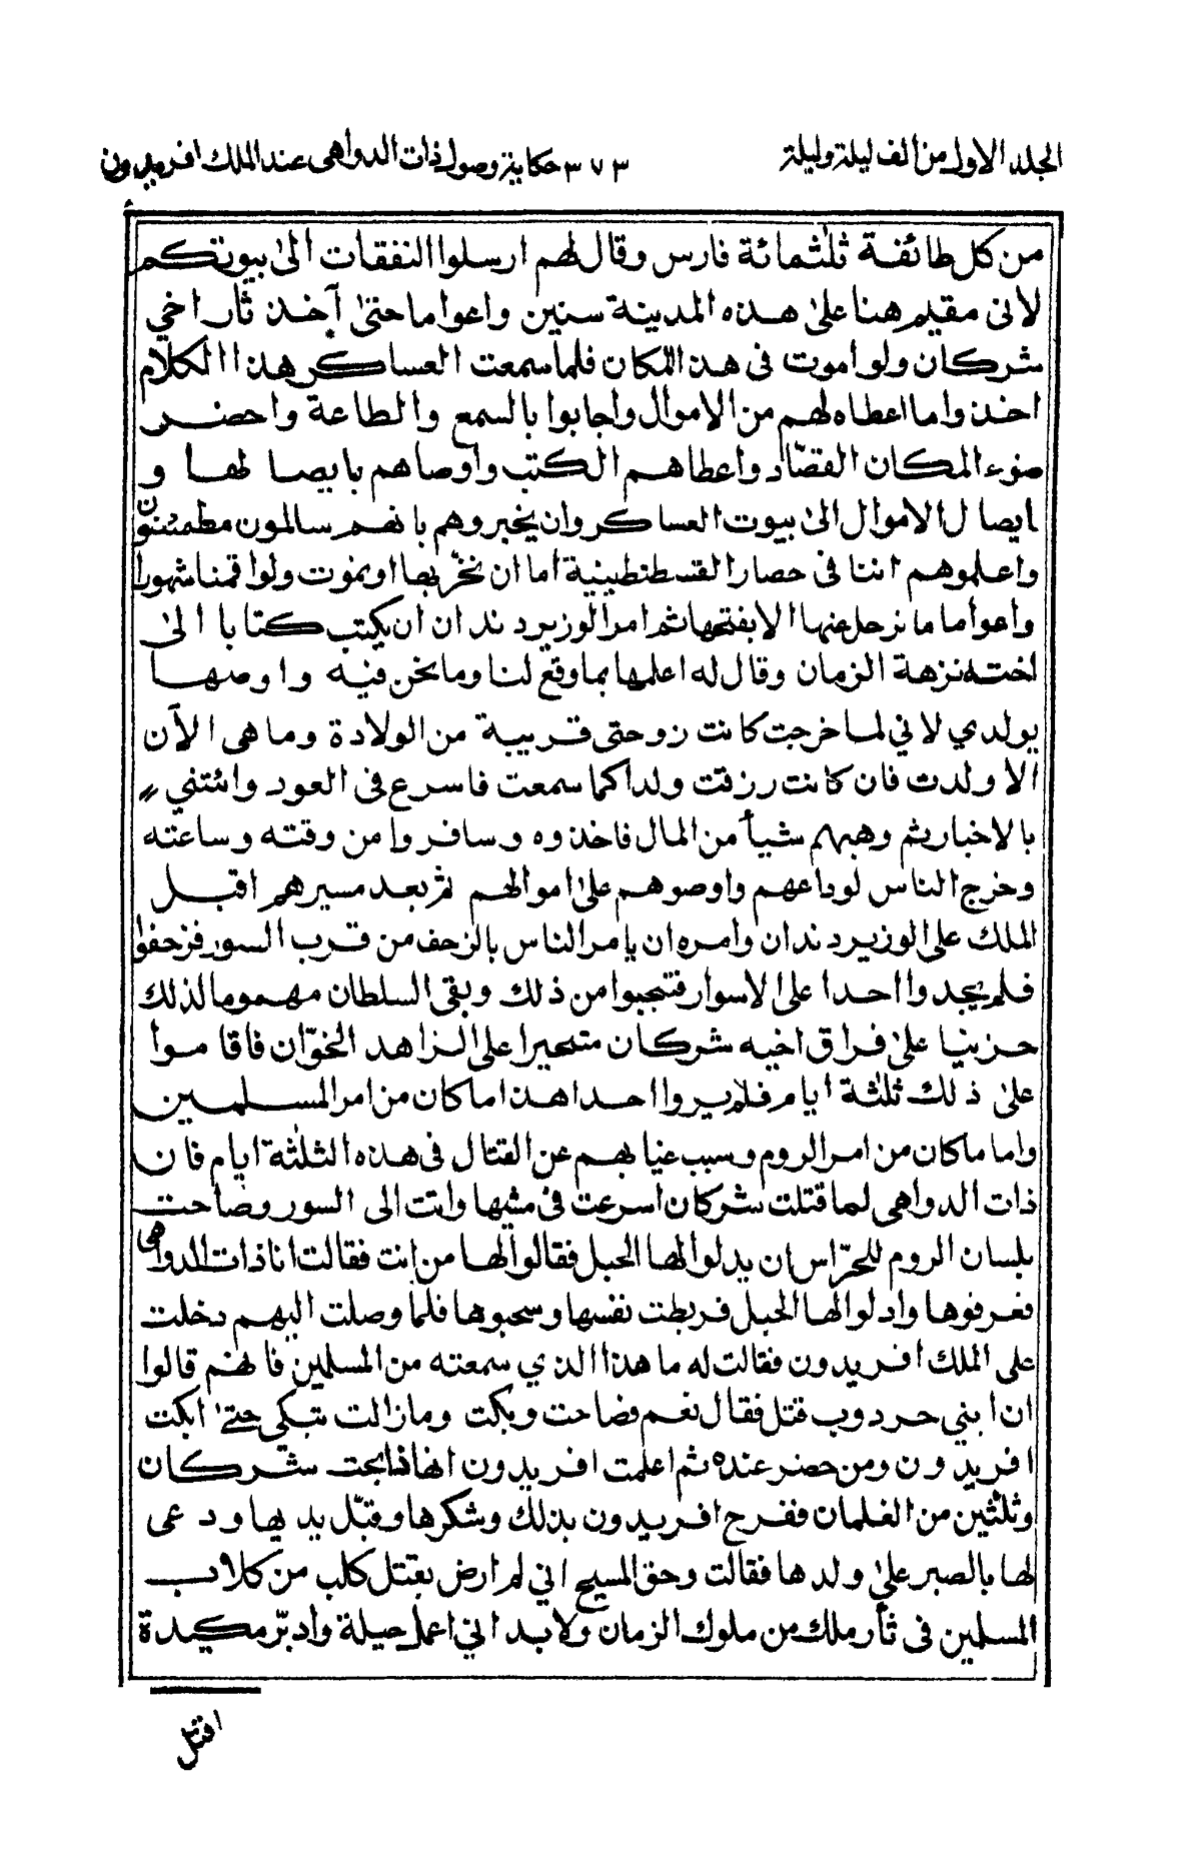 الجلد الاول من الف ليلة وليلة ٣٧٣ حكاية وصول ذات الدواهى عند الملك افريدون
من كل طائفة ثلثمائة فارس وقال لهم ارسلوا النفقات الى بيوتكم
لانى مقيم هنا على هذه المدينة سنين واعواما حتى آخذ ثار اخي
شركان ولو اموت فى هذا المكان فلما سمعت العساكر هذا الكلام
اخذوا ما اعطاه لهم من الاموال واجابوا بالسمع والطاعة واحضر
ضوء المكان القصّاد واعطاهم الكتب واوصاهم بايصا لها و
ايصال الاموال الى بيوت العساكر وان يخبروهم بانهم سالمون مطمئنون
واعلموهم اننا فى حصار القسطنطينية اما ان نخرّبها او نموت ولو اقمنا شهورا
واعواما ما نرحل عنها الا بفتحها ثم امر الوزير دندان ان يكتب كتابا الى
اخته نزهة الزمان وقال له اعلمها بما وقع لنا وما نحن فيه واوصها
بولدي لاني لما خرجت كانت زوجتى قريبة من الولادة وما هى الآن
الا ولدت فان كانت رزقت ولدا كما سمعت فاسرع فى العود وائتني
بالاخبار ثم وهبهم شيأ من المال فاخذوه وسافروا من وقته وساعته
وخرج الناس لوداعهم واوصوهم على اموالهم ثم بعد مسيرهم اقبل
الملك على الوزير دندان وامره ان يامر الناس بالزحف من قرب السور فزحفوا
فلم يجدوا احدا على الاسوار فتعجبوا من ذلك وبقى السلطان مهموما لذلك
حزينا على فراق اخيه شركان متحيرا على الزاهد الخوّان فاقاموا
على ذلك ثلثة ايام فلم يروا احدا هذا ما كان من امر المسلمين
واما ما كان من امر الروم وسبب غيابهم عن القتال فى هذه الثلثة ايام فان
ذات الدواهى لما قتلت شركان اسرعت فى مشيها واتت الى السور وصاحت
بلسان الروم للحرّاس ان يدلوا لها الحبل فقالوا لها من انت فقالت انا ذات الدواهى
فعرفوها وادلوا لها الحبل فربطت نفسها وسحبوها فلما وصلت اليهم دخلت
على الملك افريدون فقالت له ما هذا الذي سمعته من المسلمين فانهم قالوا
ان ابني حردوب قتل فقال نعم فصاحت وبكت ومازالت تبكى حتى ابكت
افريدون ومن حضر عنده ثم اعلمت افريدون انها ذابحت شركان
وثلثين من الغلمان ففرح افريدون بذلك وشكرها وقبّل يديها ودعى
لها بالصبر على ولدها فقالت وحق المسيح اني لم ارض بقتل كلب من كلاب
المسلمين فى ثأر ملك من ملوك الزمان ولا بد اني اعمل حيلة وادبّر مكيدة
اقتل